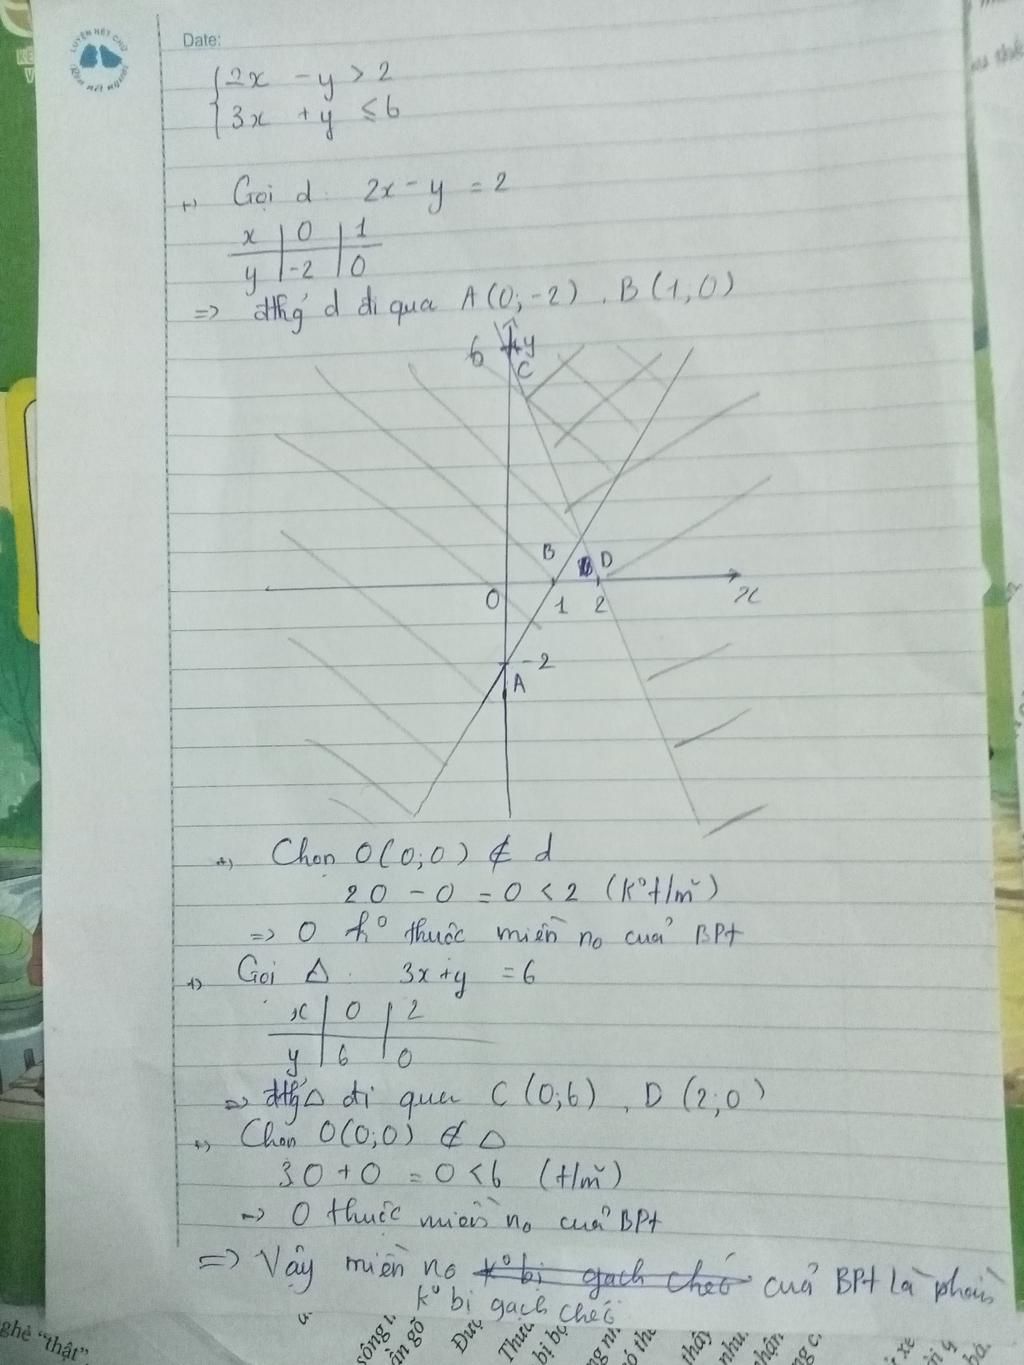 LUYỆN NÉT CHỮ
Rèn nết người
Date:
2x - y > 2
3x + y ≤ 6
+) Gọi d: 2x - y = 2
x | 0 | 1
y | -2 | 0
=> đthg d đi qua A(0;-2), B(1;0)
6 y
C
B D
O 1 2 x
-2
A
+) Chọn O(0;0) ∉ d
2.0 - 0 = 0 < 2 (k° t/m)
=> O k° thuộc miền no của BPt
+) Gọi Δ: 3x + y = 6
x | 0 | 2
y | 6 | 0
=> đthg Δ đi qua C(0;6), D(2;0)
+) Chọn O(0;0) ∉ Δ
3.0 + 0 = 0 < 6 (t/m)
-> O thuộc miền no của BPt
=> Vậy miền no k° bị gạch chéo của BPt là phần
k° bị gạch chéo
ghè "thật"